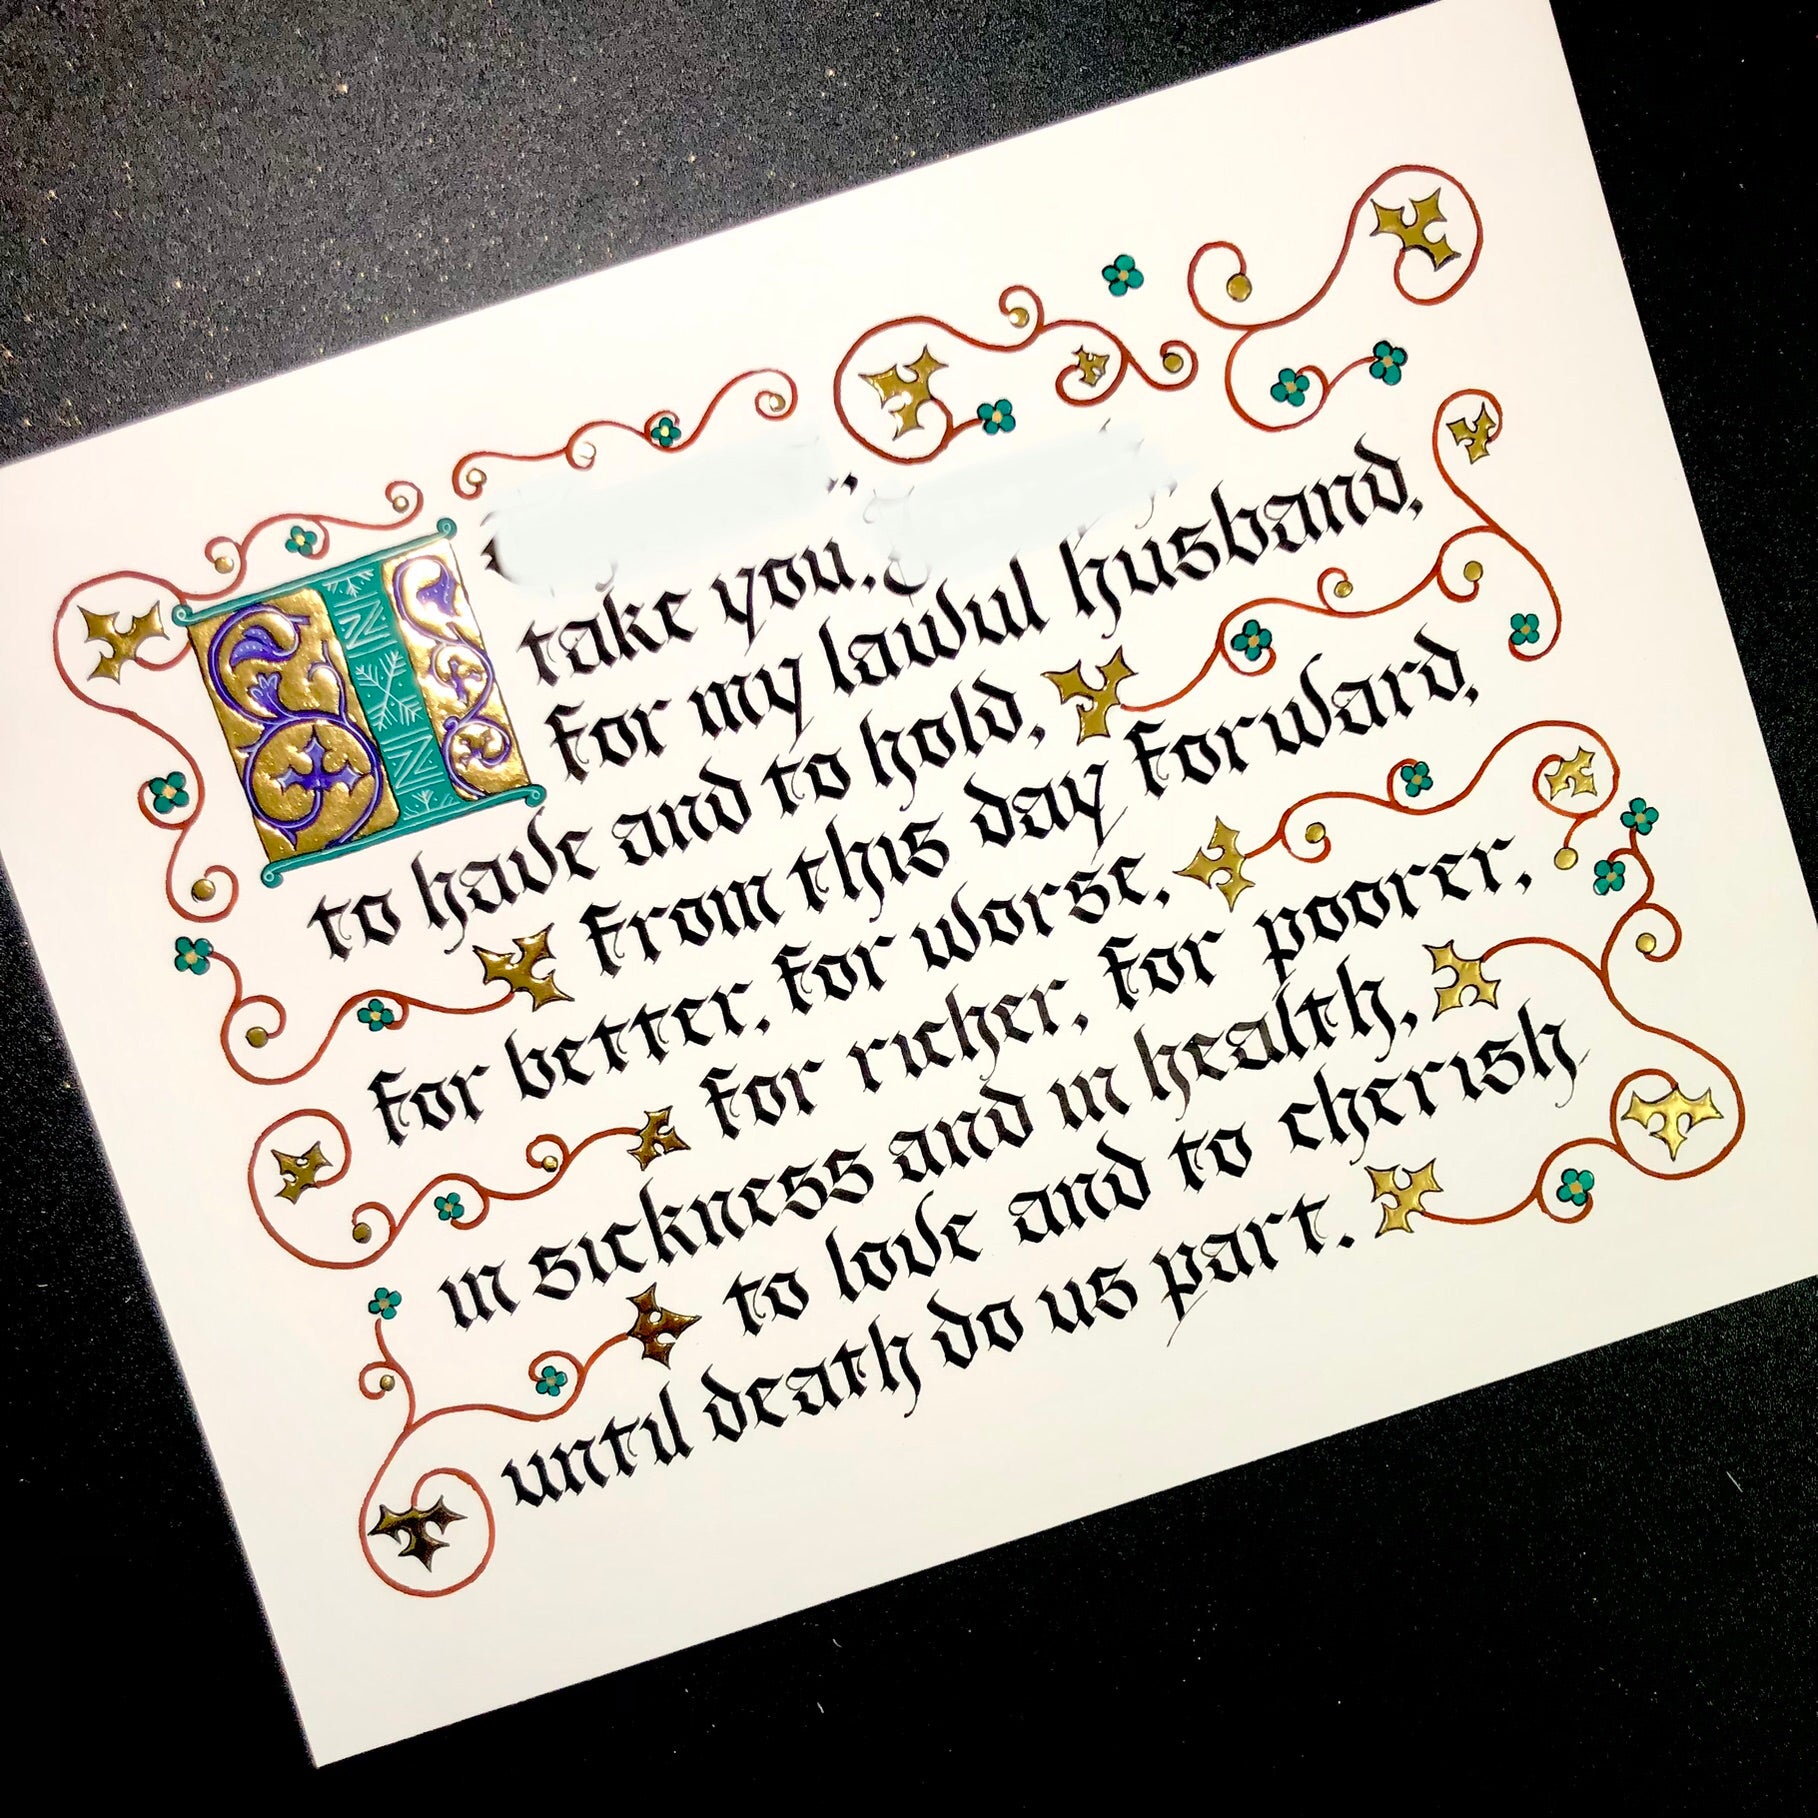 I
take you,
for my lawul husband,
to have and to hold,
from this day forward,
for better, for worse,
for richer, for poorer,
in sickness and in health,
to love and to cherish
until death do us part.